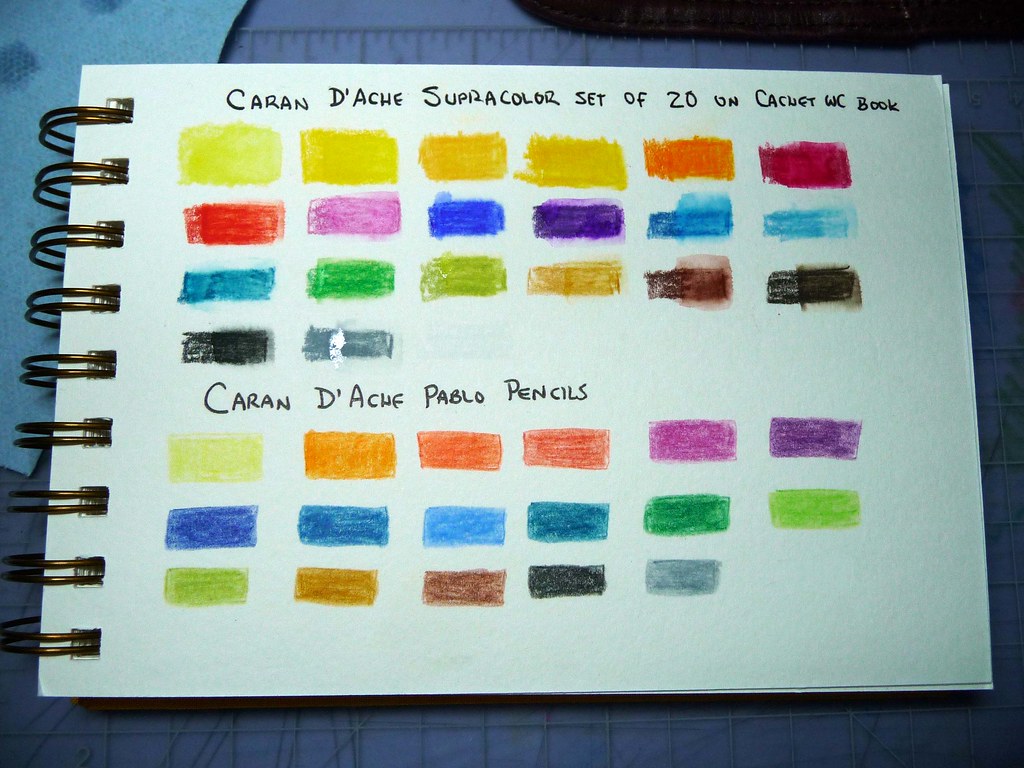 CARAN D'ACHE SUPRACOLOR SET OF 20 ON CACHET WC BOOK
CARAN D'ACHE PABLO PENCILS